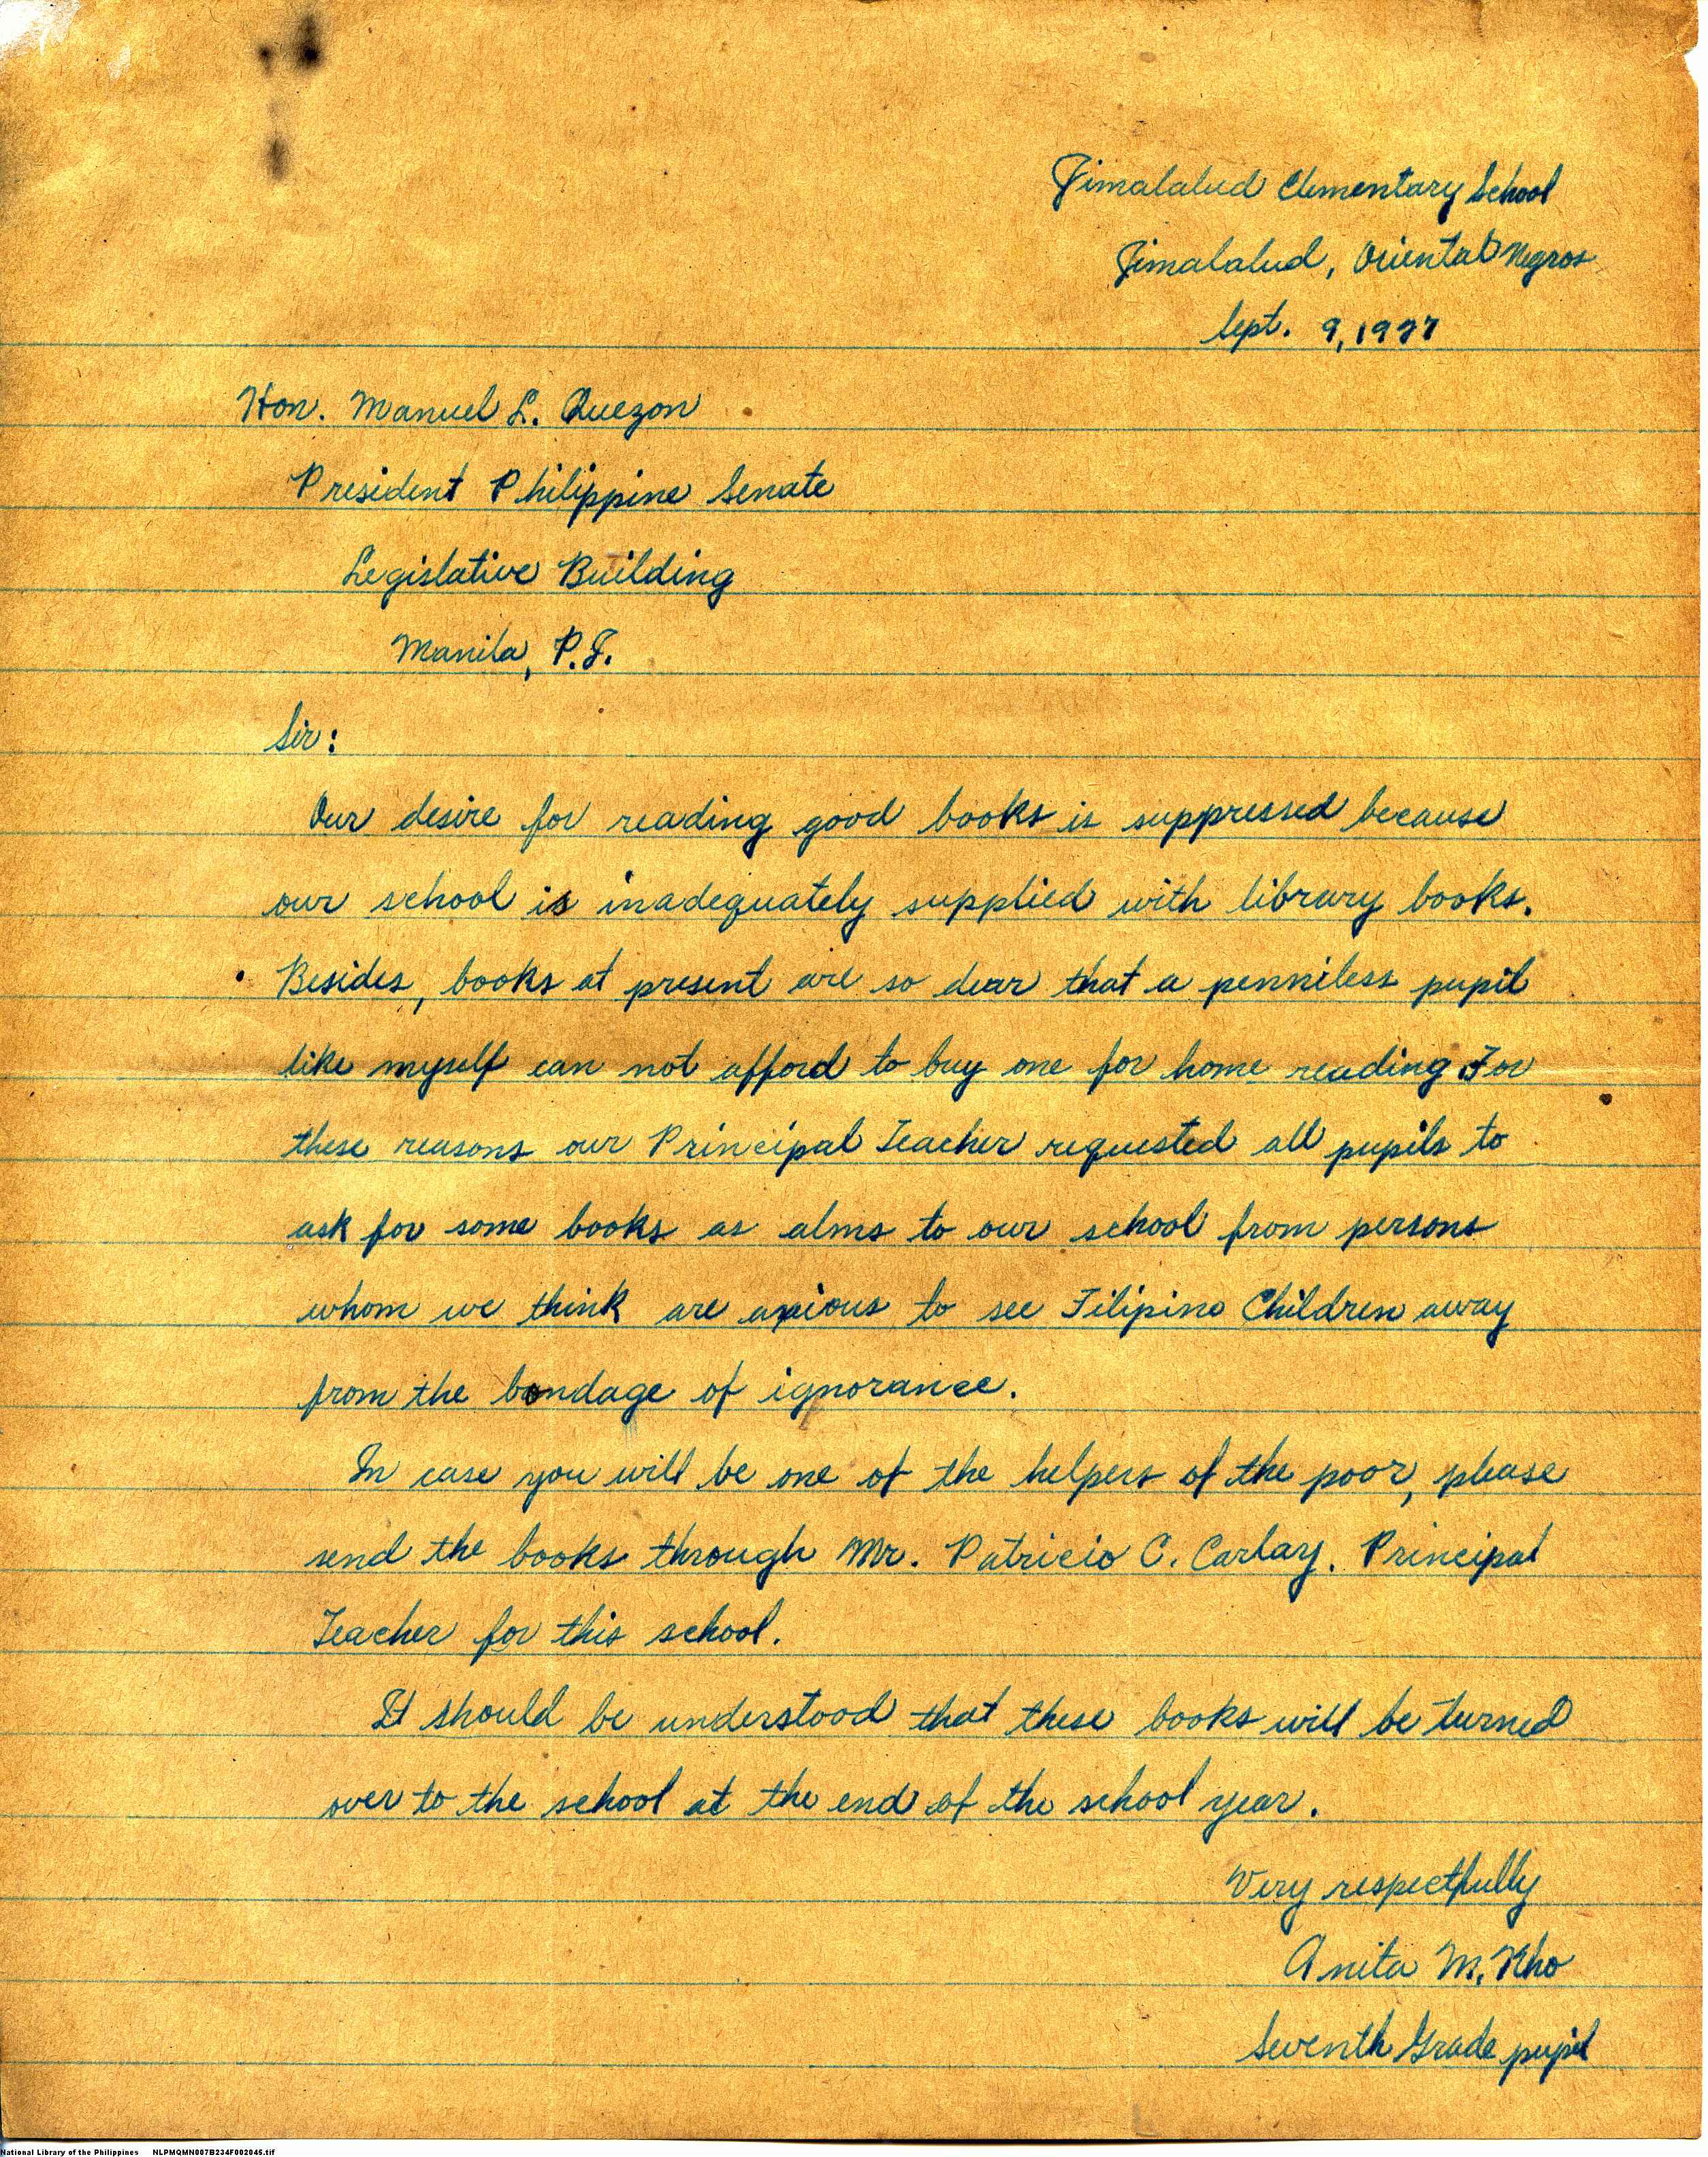 Jimalalud Elementary School
Jimalalud, Oriental Negros
Sept. 9, 1927
Hon. Manuel L. Quezon
President Philippine Senate
Legislative Building
Manila, P.I.
Sir:
Our desire for reading good books is suppressed because
our school is inadequately supplied with library books.
Besides, books at present are so dear that a penniless pupil
like myself can not afford to buy one for home reading. For
these reasons our Principal Teacher requested all pupils to
ask for some books as alms to our school from persons
whom we think are axious to see Filipino Children away
from the bondage of ignorance.
In case you will be one of the helpers of the poor, please
send the books through Mr. Patricio C. Carlay. Principal
Teacher for this school.
It should be understood that these books will be turned
over to the school at the end of the school year.
Very respectfully
Anita M. Kho
Seventh Grade pupil
National Library of the Philippines NLPMQMN007B234F002045.tif